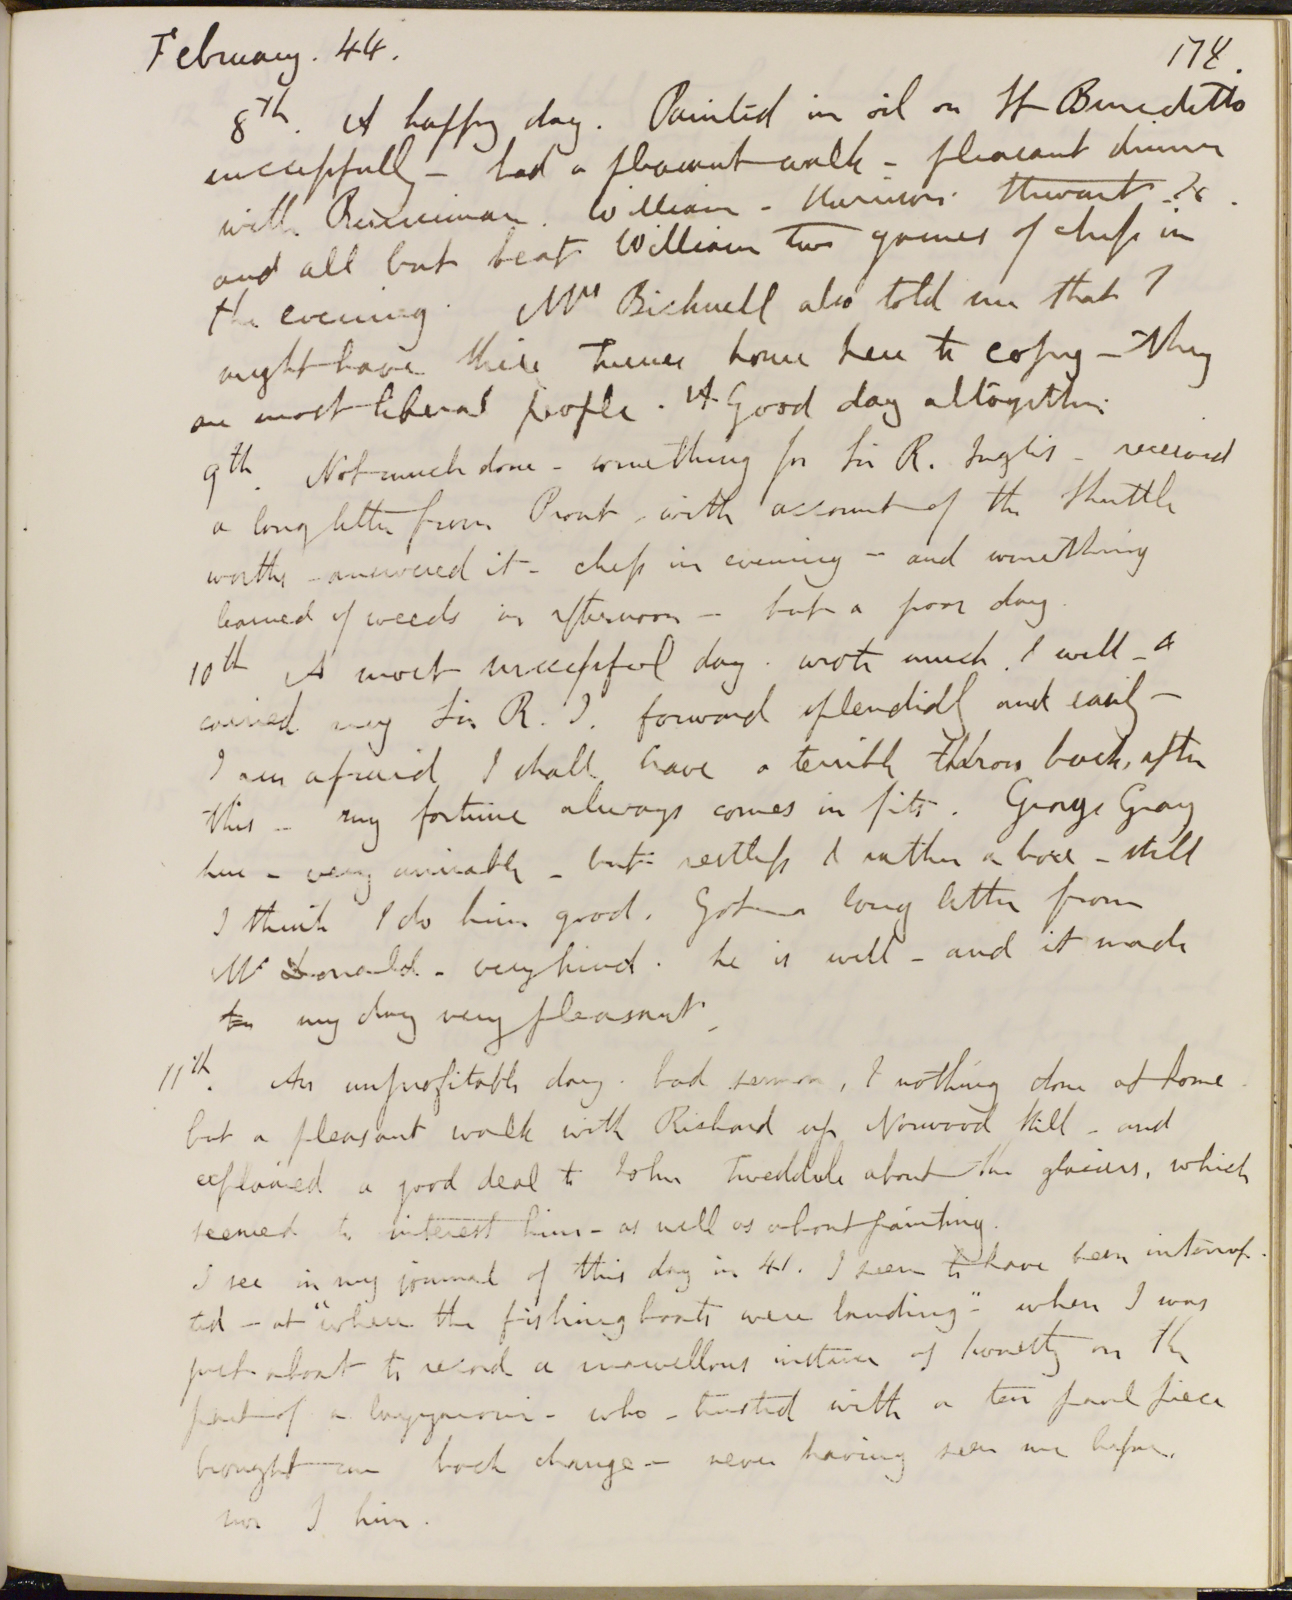 February. 44. 174.
8th. A happy day. Painted in oil on St Benedetto
successfully – had a pleasant walk – pleasant dinner
with Runciman. William – Harrison. Stewart &c.
and all but beat William two games of chess in
the evening. Mrs Bicknell also told me that I
might have their Turner home here to copy – They
are most liberal people. A Good day altogether.
9th. Not much done – something for Sir R. Inglis – received
a long letter from Prout, with account of the Shuttle
worths – answered it – chess in evening – and something
learned of weeds in afternoon – but a poor day.
10th A most successful day. wrote much & well – &
carried my Sir R. I. forward splendidly and easily –
I am afraid I shall have a terrible throw back, after
this – my fortune always comes in fits. George Gray
here – very amiable – but restless & rather a bore – still
I think I do him good. Got a long letter from
Mc Donald – very kind. he is well – and it made
my day very pleasant.
11th. An unprofitable day. bad sermon, & nothing done at home.
but a pleasant walk with Richard up Norwood Hill – and
explained a good deal to John Tweddale about the glaciers, which
seemed to interest him – as well as about painting.
I see in my journal of this day in 41. I seem to have been interrup-
ted – at "where the fishingboats were landing" – when I was
just about to record a marvellous instance of honesty on the
part of a lazzarone – who – trusted with a ten paul piece
brought me back change – never having seen me before,
nor I him.